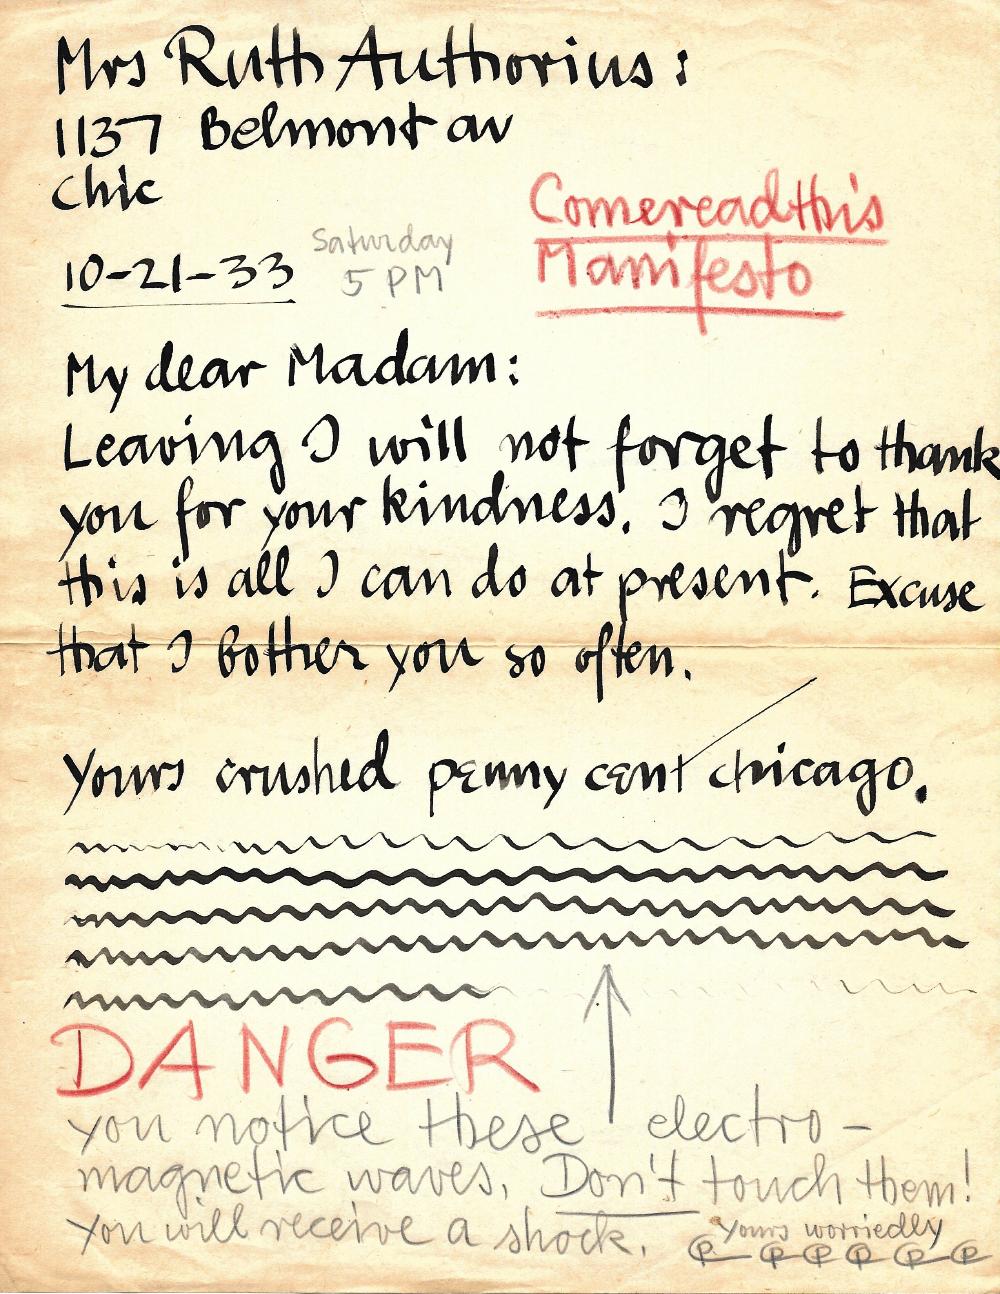 Mrs Ruth Authorius:
1137 Belmont av
Chic
Come read this
Manifesto
10-21-33
Saturday
5 PM
My dear Madam:
Leaving I will not forget to thank
you for your kindness. I regret that
this is all I can do at present. Excuse
that I bother you so often.
Yours crushed penny cent chicago.
DANGER
you notice these electro-
magnetic waves. Don't touch them!
You will receive a shock.
Yours worriedly
P P P P P P